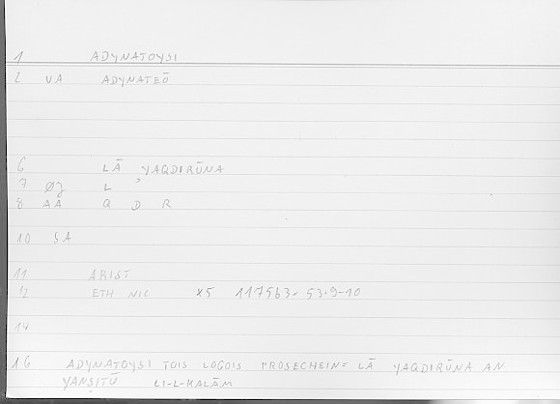 1 ADYNATOYSI
2 VA ADYNATEŌ
6 LĀ YAQDIRŪNA
7 ØJ L ʾ
8 AA Q D R
10 SA
11 ARIST
12 ETH NIC X5 1175b3- 53.9-10
14
16 ADYNATOYSI TOIS LOGOIS PROSECHEIN= LĀ YAQDIRŪNA AN
YANṢITŪ LI-L-KALĀM